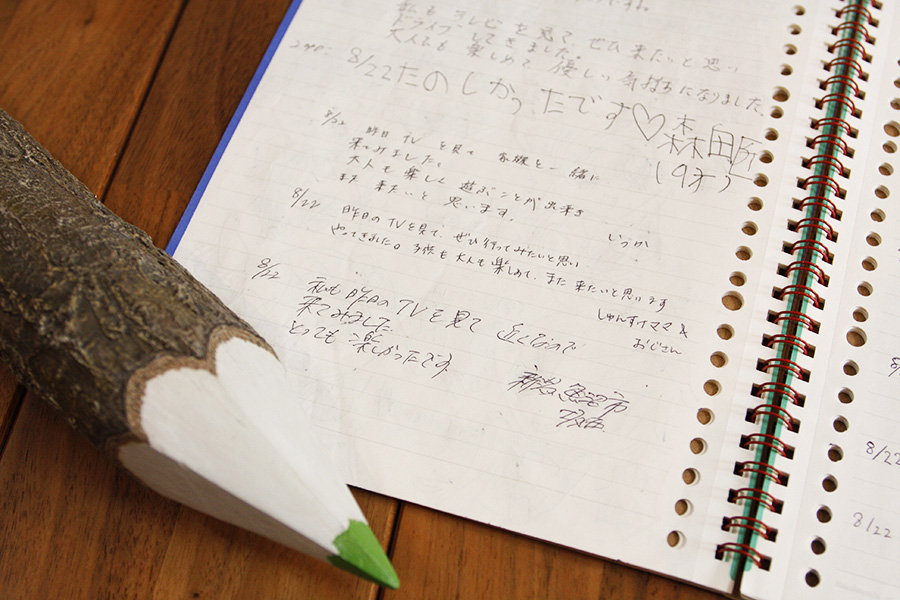 私もテレビを見て、ぜひ来たいと思い
ドライブしてきました。
大人でも楽しめて優しい気持ちになりました。
8/22 たのしかったです♡
森田
(9才)
8/22 昨日TVを見て家族と一緒に
来てみました。
大人も楽しく遊ぶことが出来き
また来たいと思います。
いつか
8/22 昨日のTVを見て、ぜひ行ってみたいと思い
やってきました。子供も大人も楽しめて、また来たいと思います
しゅんすけママ &
おじさん
8/22 私も昨日のTVを見て近くなので
来てみました
とっても楽しかったです。
8/22
8/22